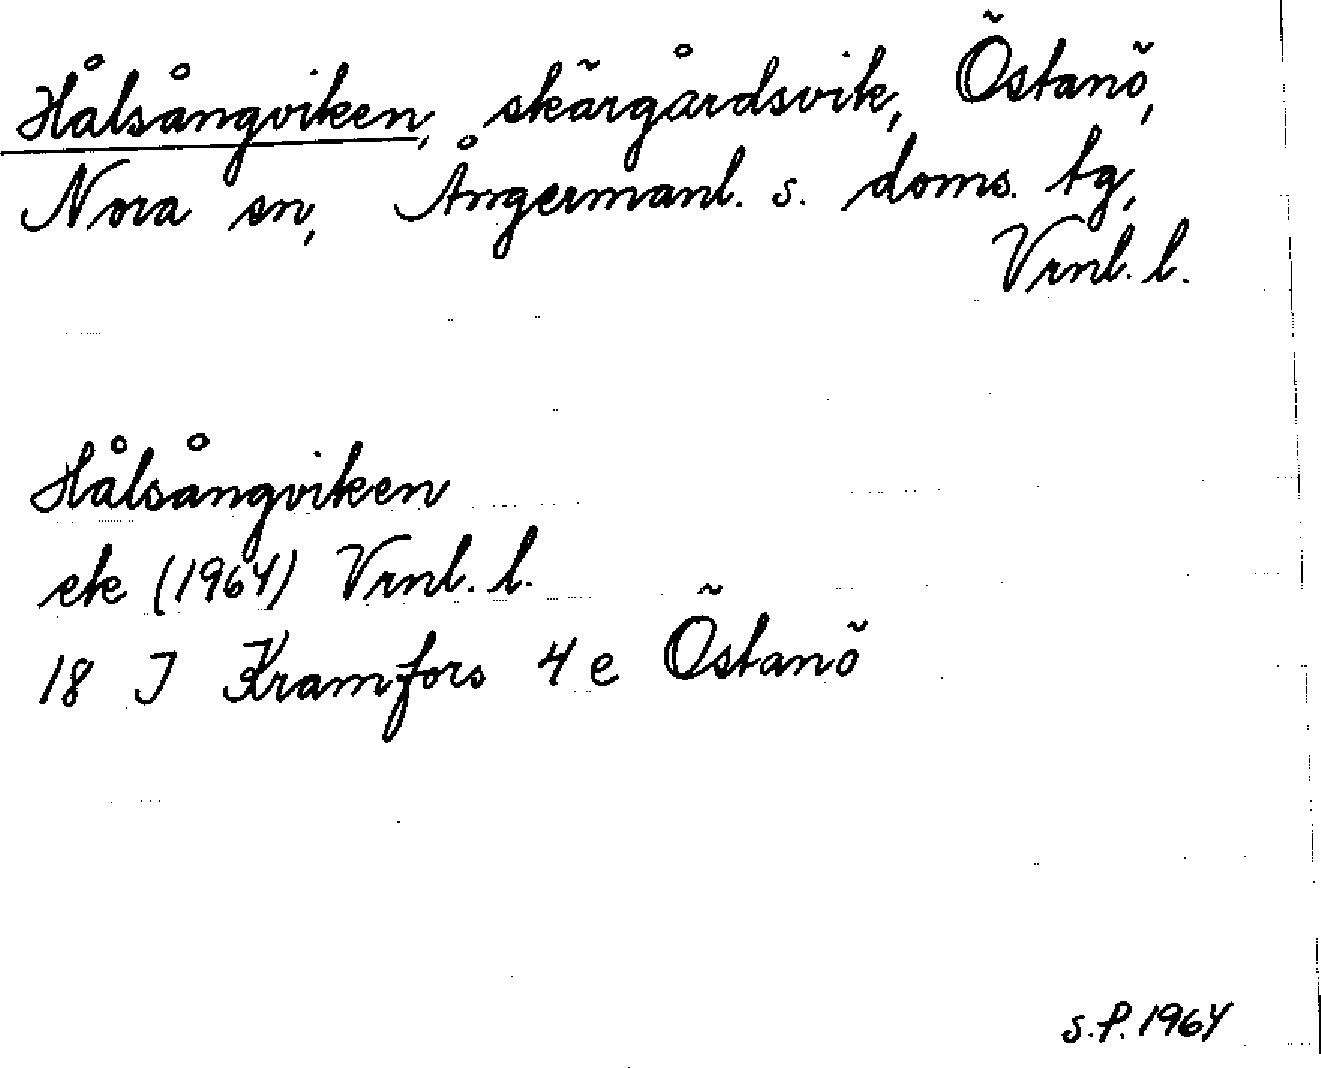 Hålsångviken, skärgårdsvik, Östanö,
Nora sn, Ångermanl. s. doms. tg,
Vrnl. l.
Hålsångviken
ek (1964) Vrnl. l.
18 J Kramfors 4 e Östanö
s.f. 1964